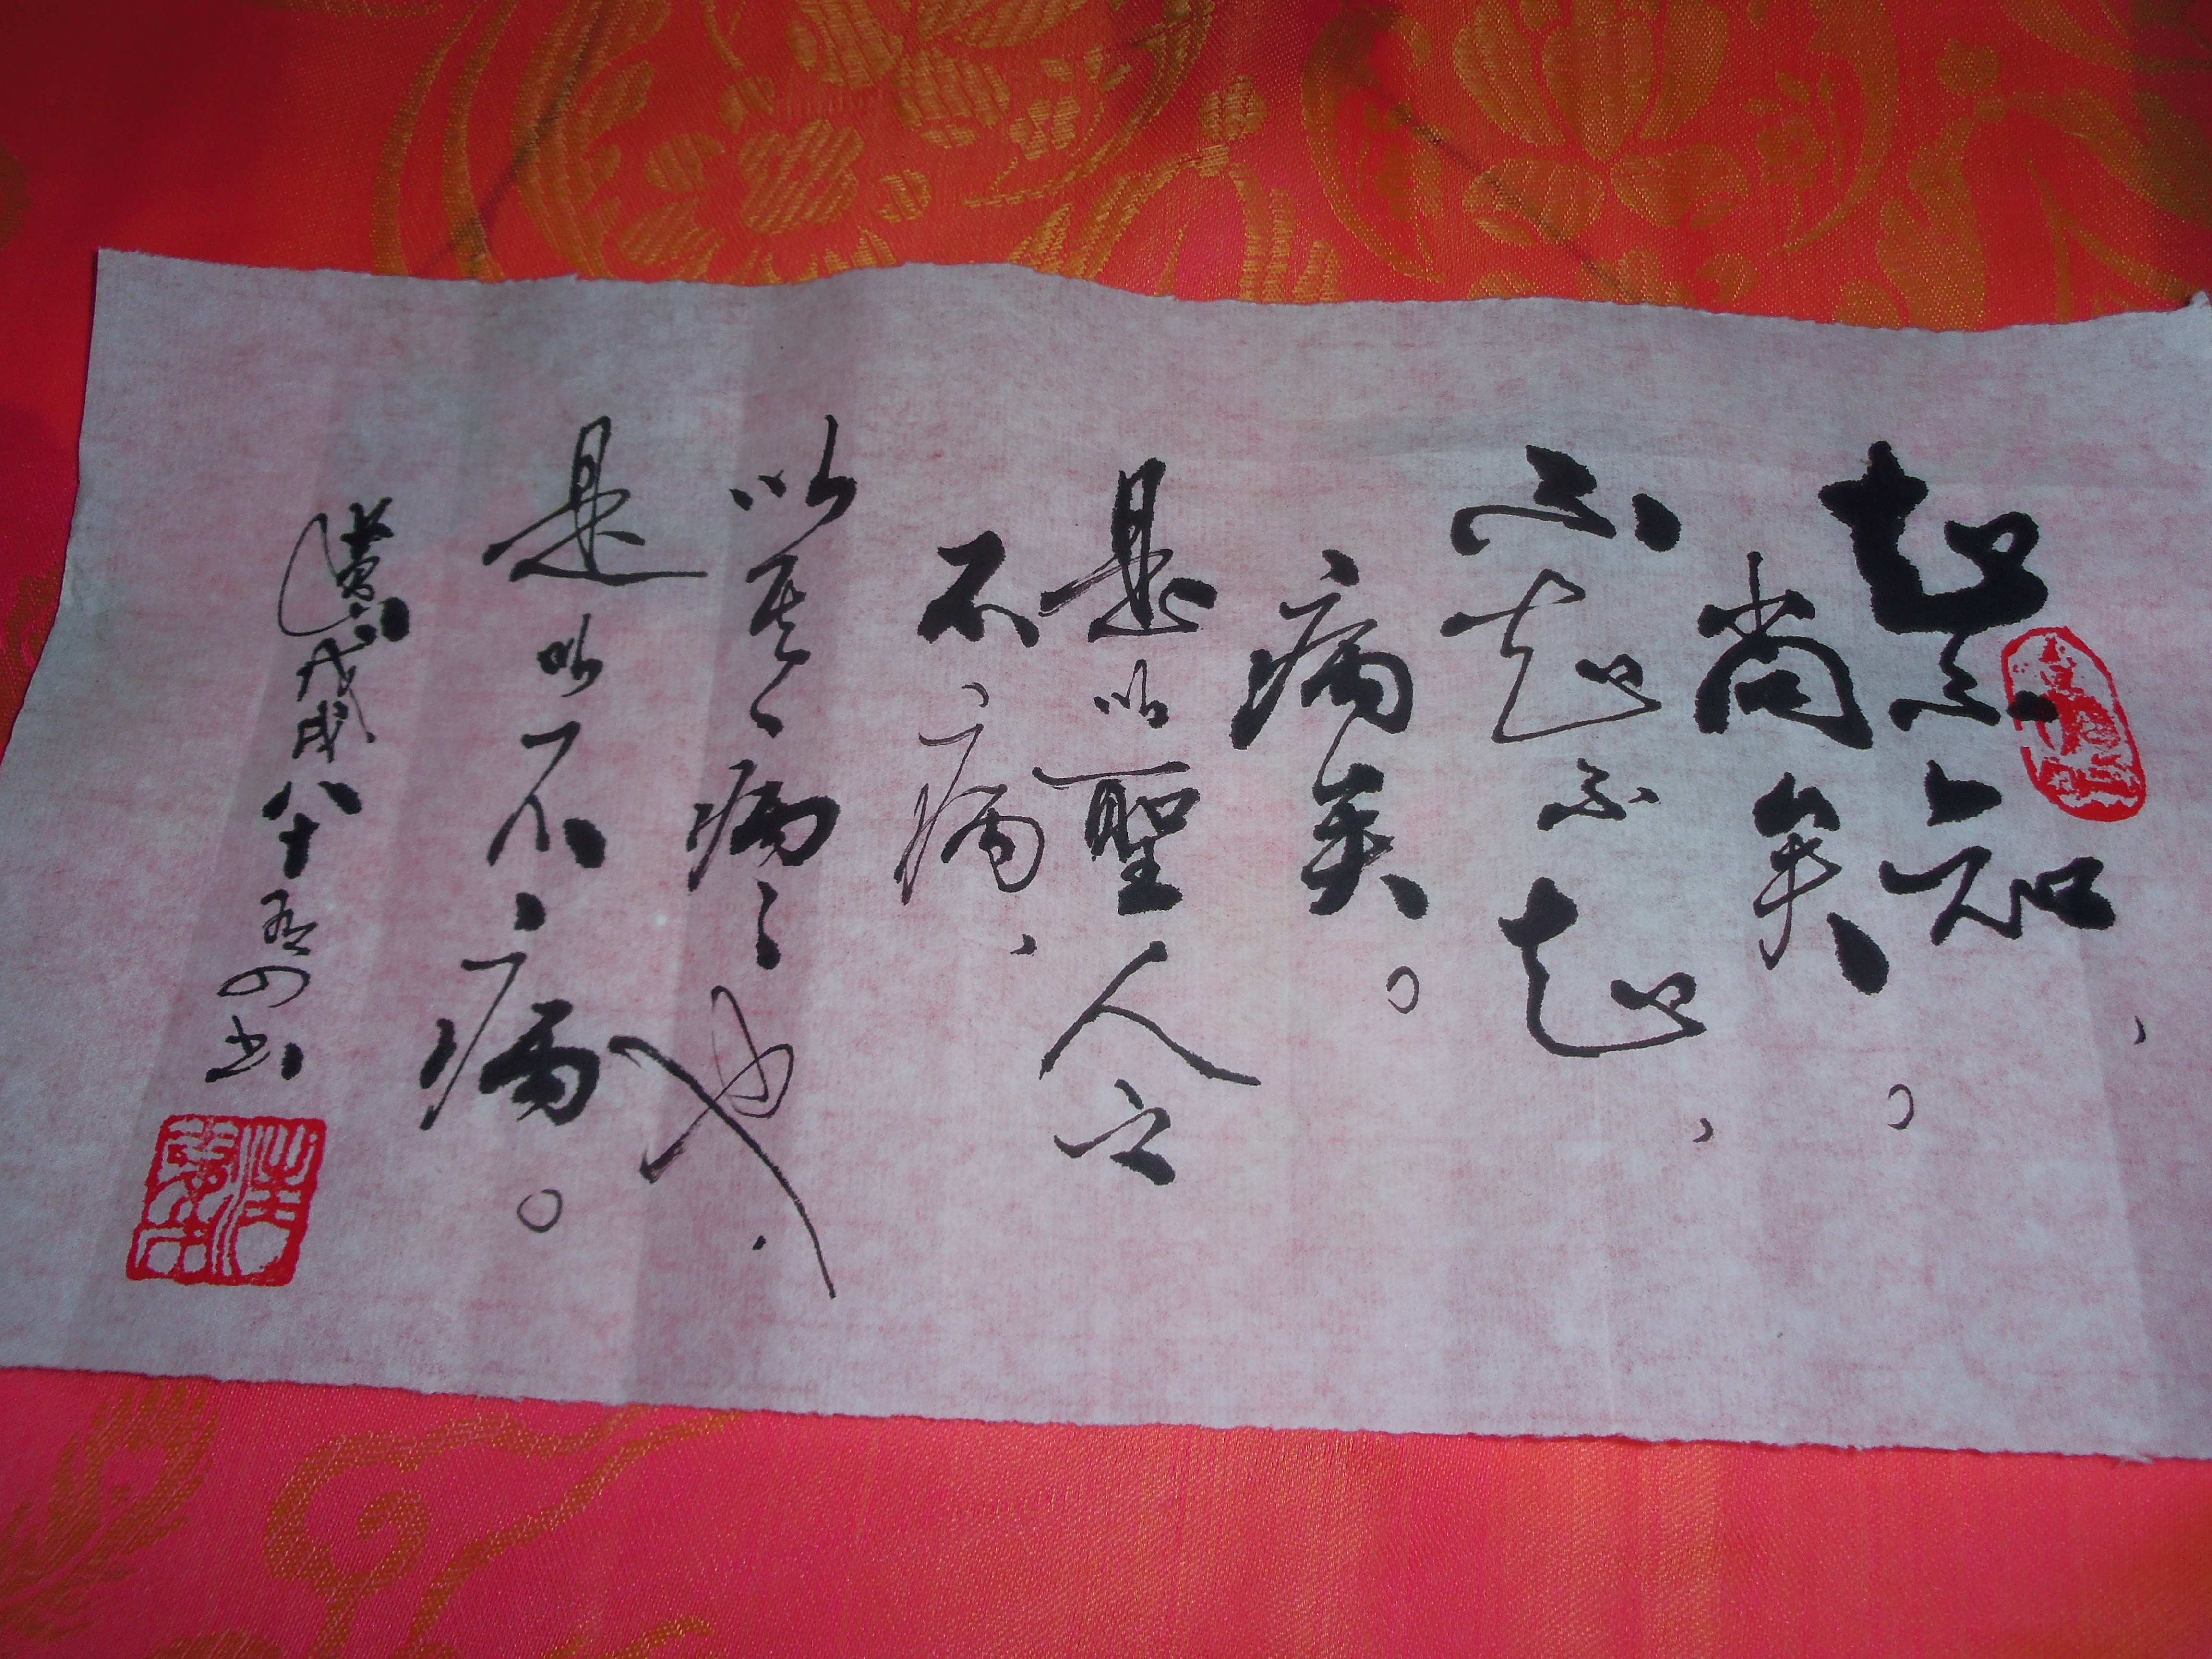 知不知、
尚矣。
不知不知、
病矣。
是以聖人之
不病、
以其病〻也.
是以不病。
戊戌八十 書